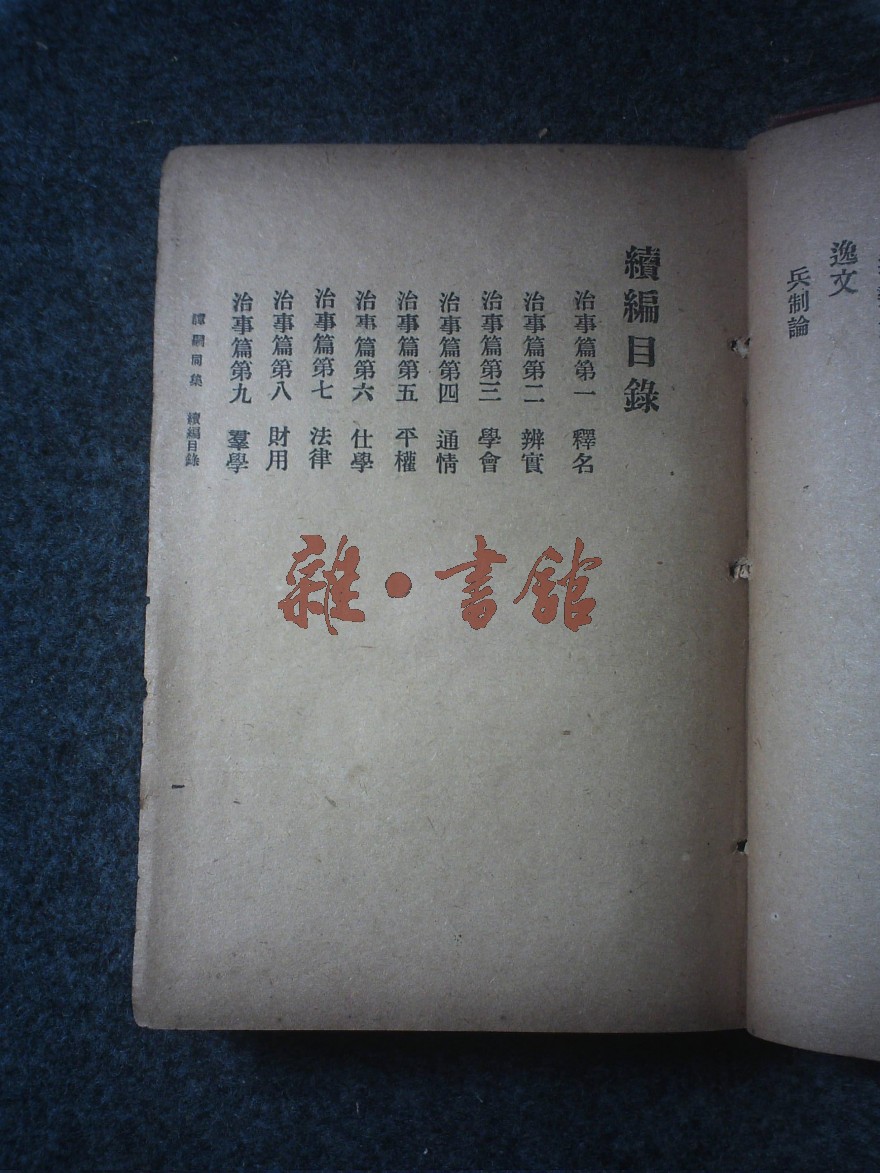 逸文
兵制論
續編目錄
治事篇第一 釋名
治事篇第二 辨實
治事篇第三 學會
治事篇第四 通情
治事篇第五 平權
治事篇第六 仕學
治事篇第七 法律
治事篇第八 財用
治事篇第九 羣學
譚嗣同集 續編目錄
雜·書館